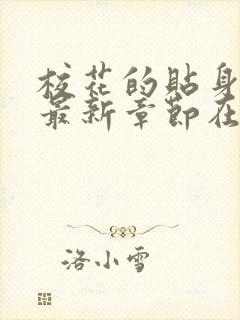 校花的貼身
最新章節在
洛小雪